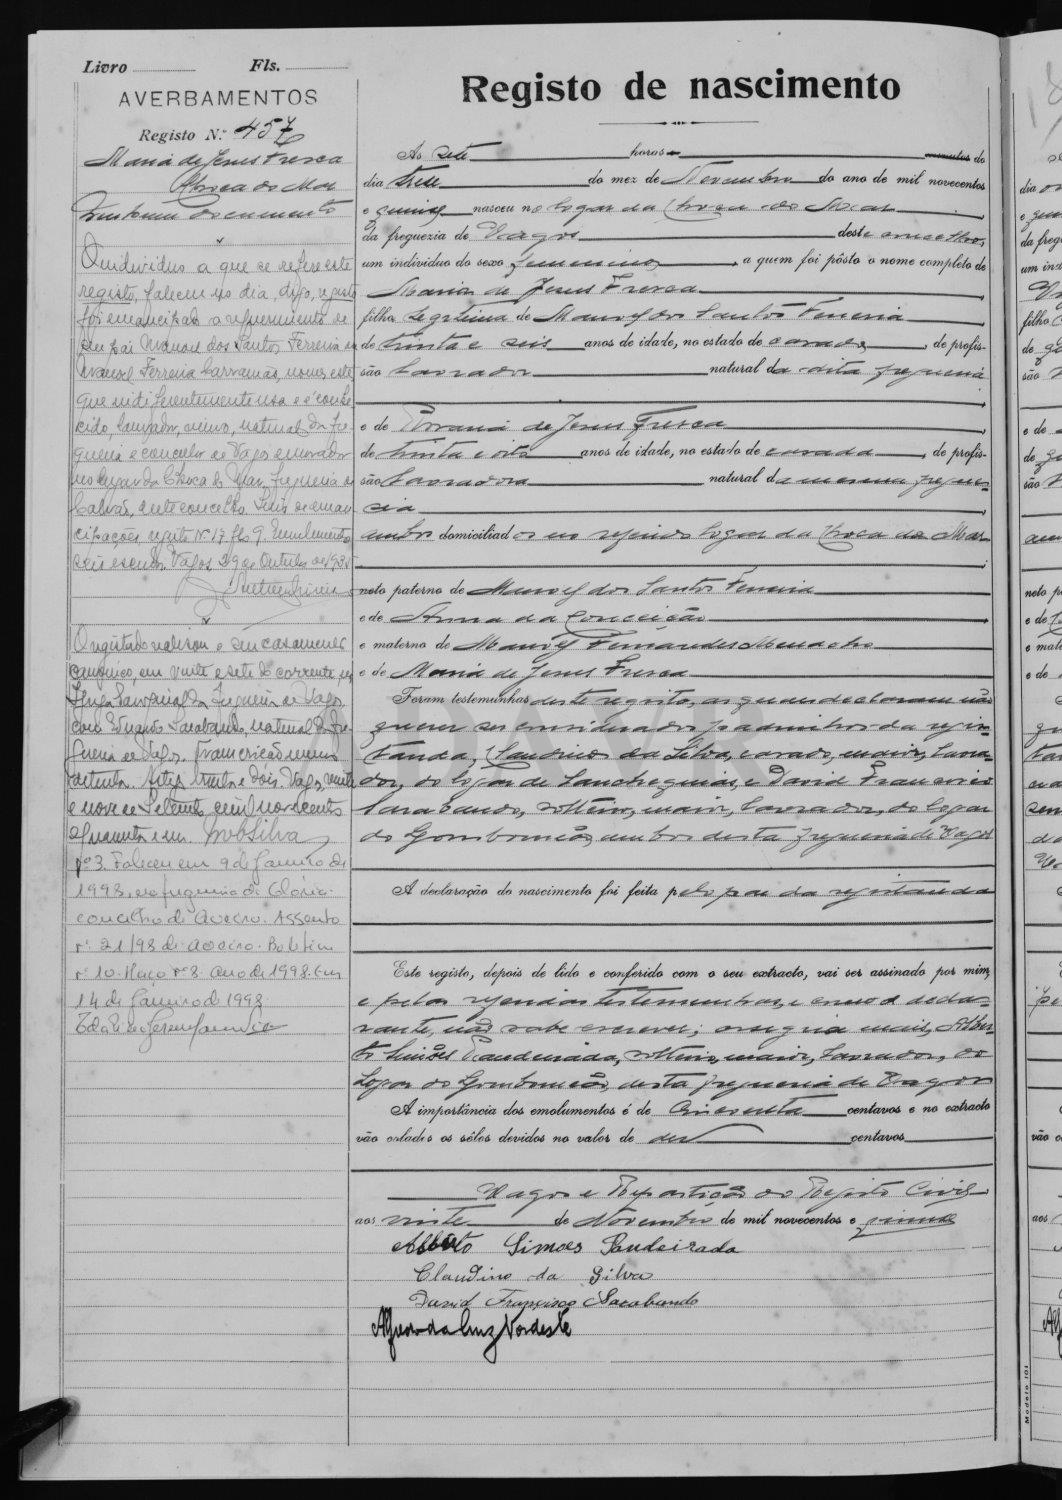 Livro Fls.
AVERBAMENTOS
Registo N.º 457
Maria de Jesus Fresca
Choca do Mar
Nenhum documento
O individuo a que se refere este
registo, faleceu no dia, digo, registo
foi emancipado a requerimento de
seu pai Manoel dos Santos Ferreira ou
Manoel Ferreira Carramão, nomes este
que indiferentemente usa e é conhe-
cido, lavrador, viuvo, natural da fre-
guesia e concelho de Vagos e morador
no lugar da Choca do Mar, freguesia de
Calvão, deste concelho. Livro de eman-
cipações, registo Nº 17 fls 9. Emolumentos
seis escudos. Vagos 29 de Outubro de 193
O registado realisou o seu casamento
canonico, em vinte e sete do corrente, na
Igreja Paroquial da freguesia de Vagos
com Eduardo Sarabando, natural da fre-
guesia de Vagos. Transcrição numero
setenta. Artigo trinta e dois. Vagos, vinte
e nove de Setembro, de mil novecentos
e quarenta e um. Silva
nº 3. Faleceu em 9 de Janeiro de
1998, na freguesia da Glória-
concelho de Aveiro. Assento
nº 21/98 de Aveiro. Boletim
nº 10. Maço nº 8. ano de 1998. Em
14 de Janeiro de 1998
Registo de nascimento
As sete horas minutos do
dia treze do mez de Novembro do ano de mil novecentos
e quinze nasceu no logar da Choca do Mar
da freguezia de Vagos deste concelho,
um individuo do sexo feminino, a quem foi pôsto o nome completo de
Maria de Jesus Fresca
filha legitima de Manoel dos Santos Ferreira
de trinta e seis anos de idade, no estado de casado, de profis-
são lavrador natural da dita freguesia
e de Rosaria de Jesus Fresca
de trinta e oito anos de idade, no estado de casada, de profis-
são lavradora natural da mesma fregue-
sia
ambos domiciliados no referido logar da Choca do Mar
neto paterno de Manoel dos Santos Ferreira
e de Anna da Conceição
e materno de Manoel Fernandes
e de Maria de Jesus Fresca
Foram testemunhas deste registo, as quaes declararam não
querer ser considerados padrinhos da regis-
tanda, Claudino da Silva, casado, maior, lavra-
dor, do logar de Sanchequias, e David Francisco
Sarabando, solteiro, maior, lavrador, do logar
do Lombomeão, ambos desta freguesia de Vagos
A declaração do nascimento foi feita pelo pae da registanda
Este registo, depois de lido e conferido com o seu extracto, vai ser assinado por mim,
e pelas referidas testemunhas, e como o decla-
rante, não sabe escrever; assigna mais, Alber-
to Simões Pandeirada, solteiro, maior, lavrador, do
logar do Lombomeão, desta freguesia de Vagos
A importância dos emolumentos é de cincoenta centavos e no extracto
vão colados os sêlos devidos no valor de dez centavos
Vagos e Repartição do Registo Civil
aos vinte de Novembro de mil novecentos e quinze
Alberto Simões Pandeirada
Claudino da Silva
David Francisco Sarabando
da Cruz Nordeste
Modelo 101